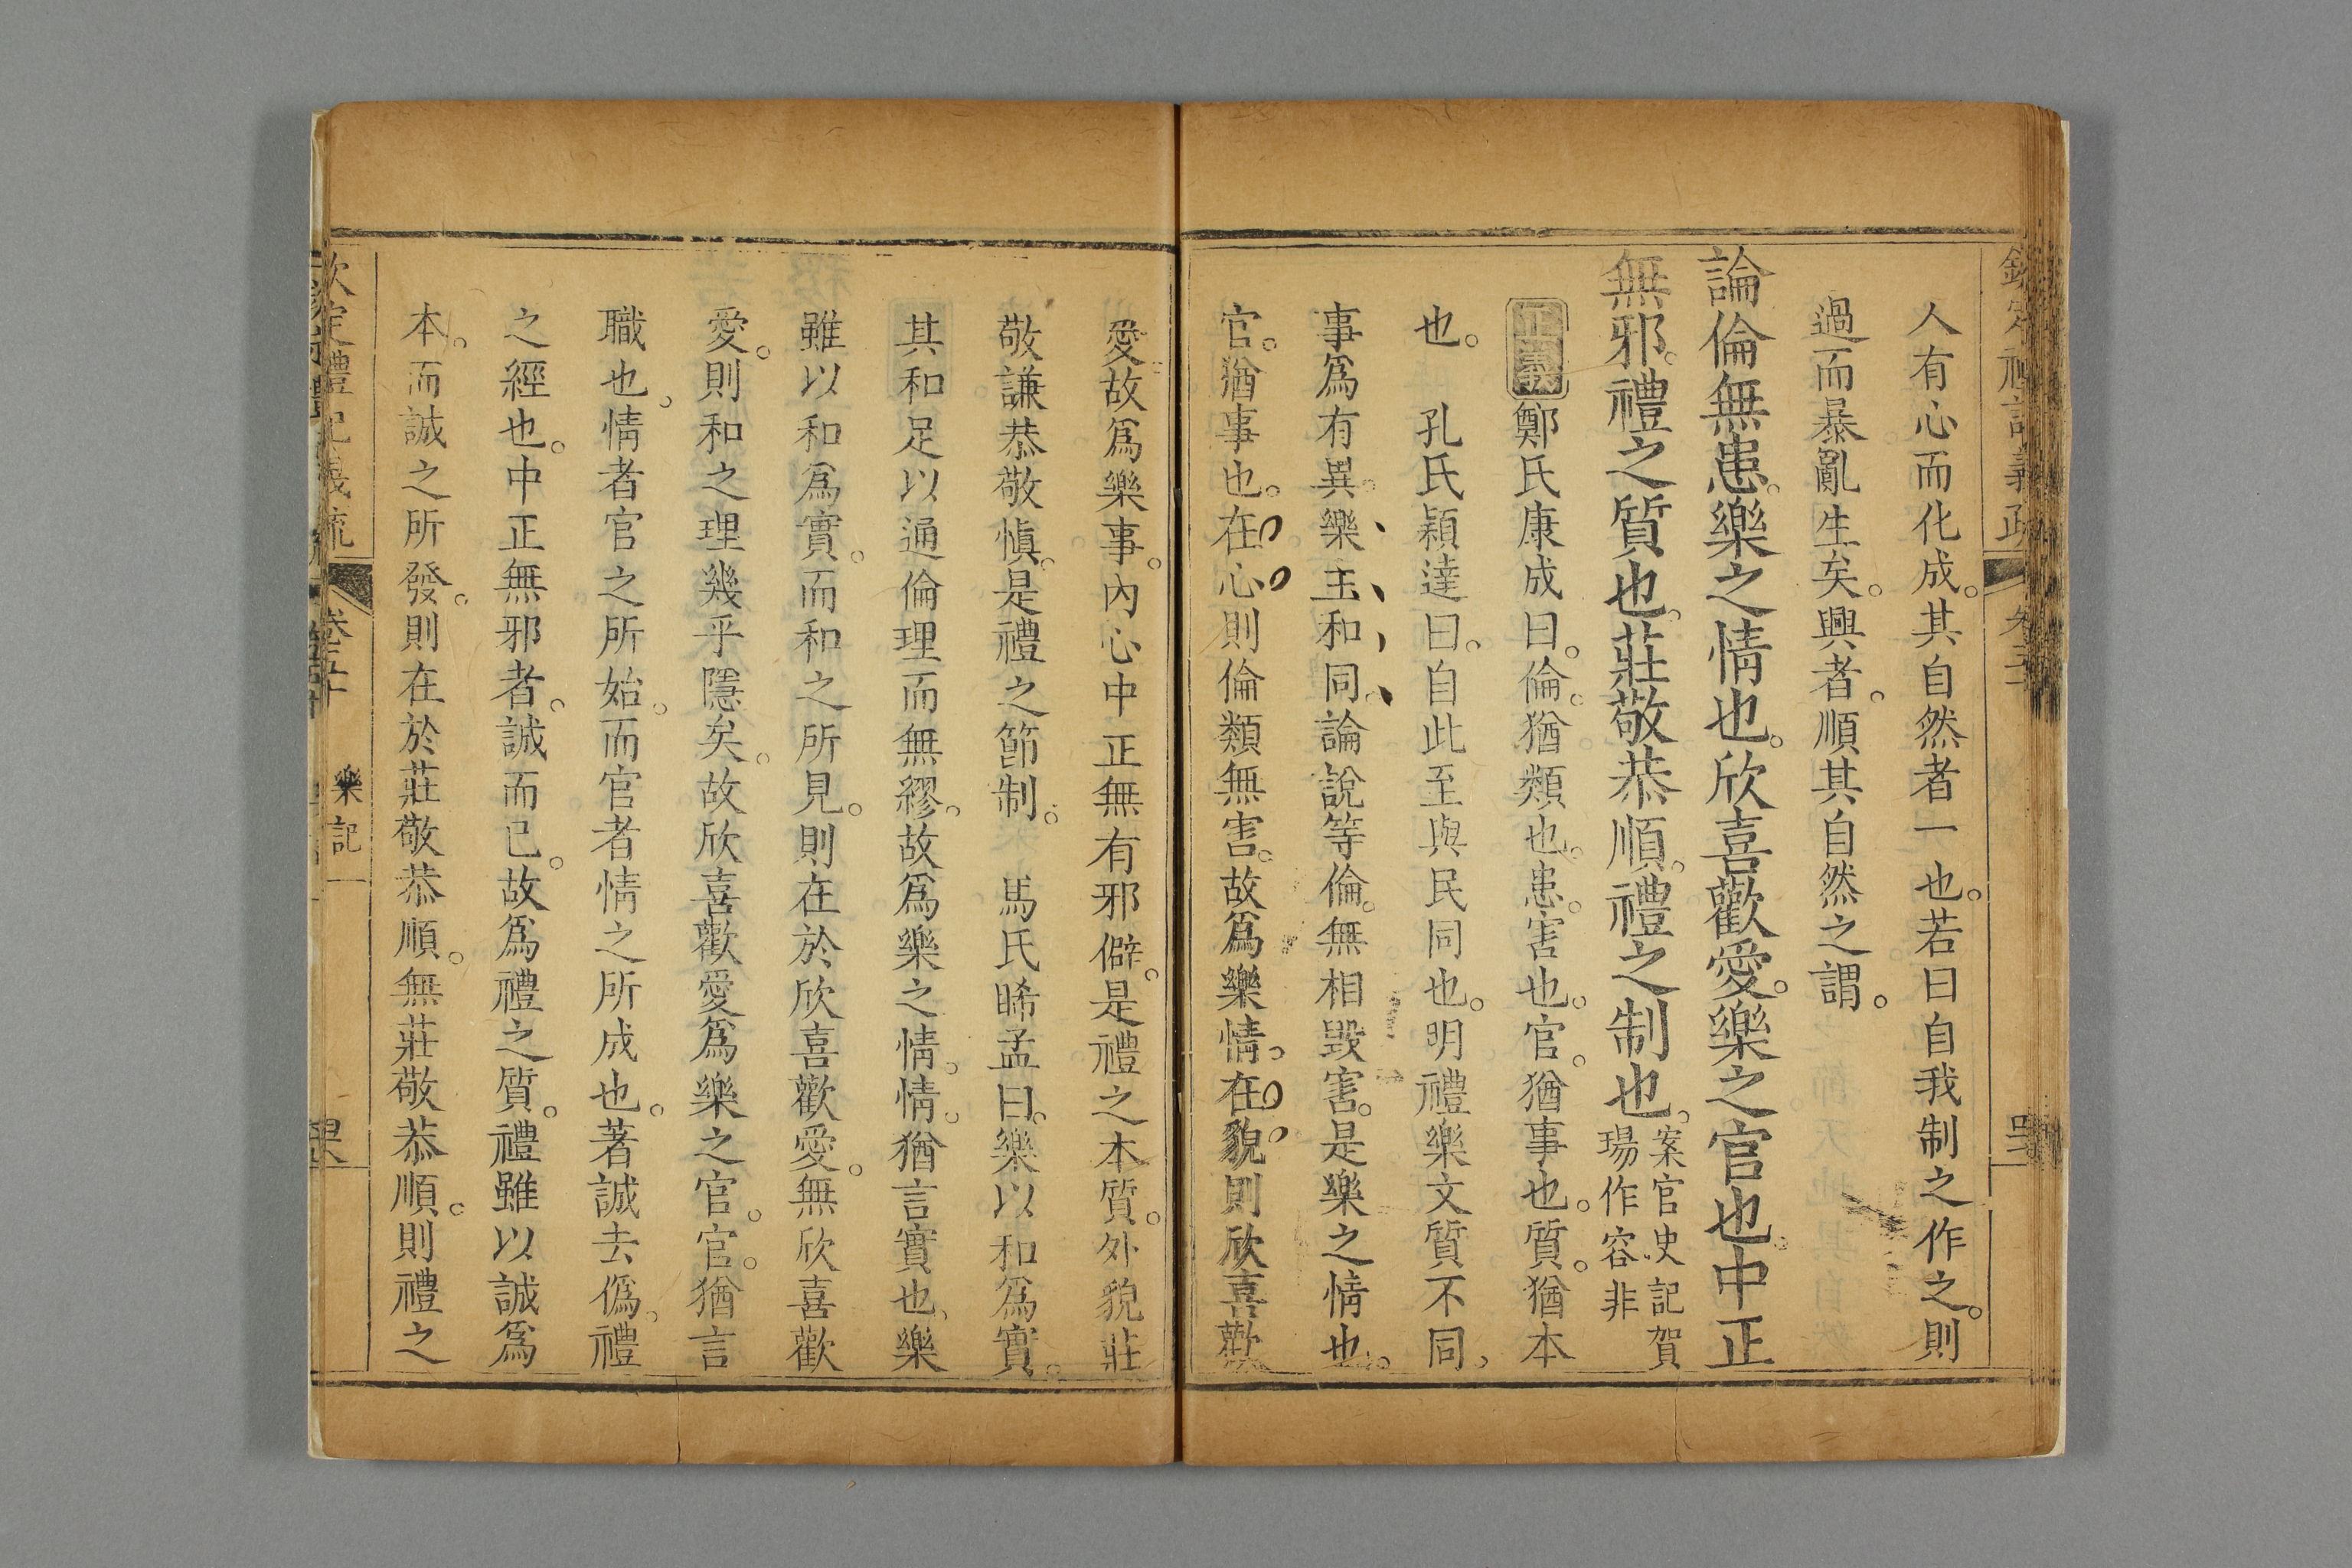 人有心而化成。其自然者一也。若曰自我制之作之。則
過而暴亂生矣。興者。順其自然之謂。
論倫無患。樂之情也。欣喜歡愛。樂之官也。中正
無邪。禮之質也。莊敬恭順。禮之制也。案官史記賀
瑒作容非
正義鄭氏康成曰。倫。猶類也。患。害也。官。猶事也。質。猶本
也。 孔氏穎達曰。自此至與民同也。明禮樂文質不同、
事爲有異。樂主和同。論說等倫。無相毀害。是樂之情也。
官。猶事也。在心則倫類無害。故爲樂情。在貌則欣喜歡
愛故爲樂事。內心中正無有邪僻。是禮之本質。外貌莊
敬謙恭敬愼。是禮之節制。 馬氏晞孟曰。樂以和爲實。
其和足以通倫理而無繆。故爲樂之情。情。猶言實也、樂
雖以和爲實。而和之所見。則在於欣喜歡愛。無欣喜歡
愛。則和之理幾乎隱矣。故欣喜歡愛爲樂之官。官。猶言
職也。情者官之所始。而官者情之所成也。著誠去僞。禮
之經也。中正無邪者。誠而已。故爲禮之質。禮雖以誠爲
本。而誠之所發。則在於莊敬恭順。無莊敬恭順。則禮之
樂記一